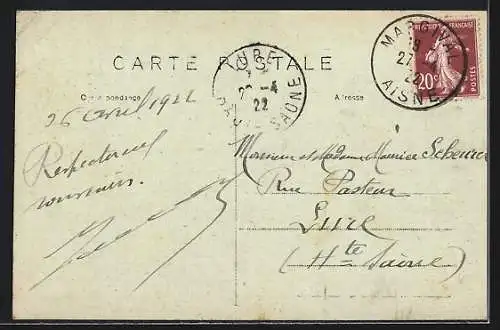 CARTE POSTALE
Correspondance
Adresse
MARGIVAL
18
27
22
AISNE
LURE
-4
22
HAUTE SAONE
RÉPUBLIQUE FRANÇAISE
20c
POSTES
26 avril 1922
Respectueux
souvenirs.
Monsieur et Madame Maurice Scheurer
Rue Pasteur
Lure
(Hte Saône)